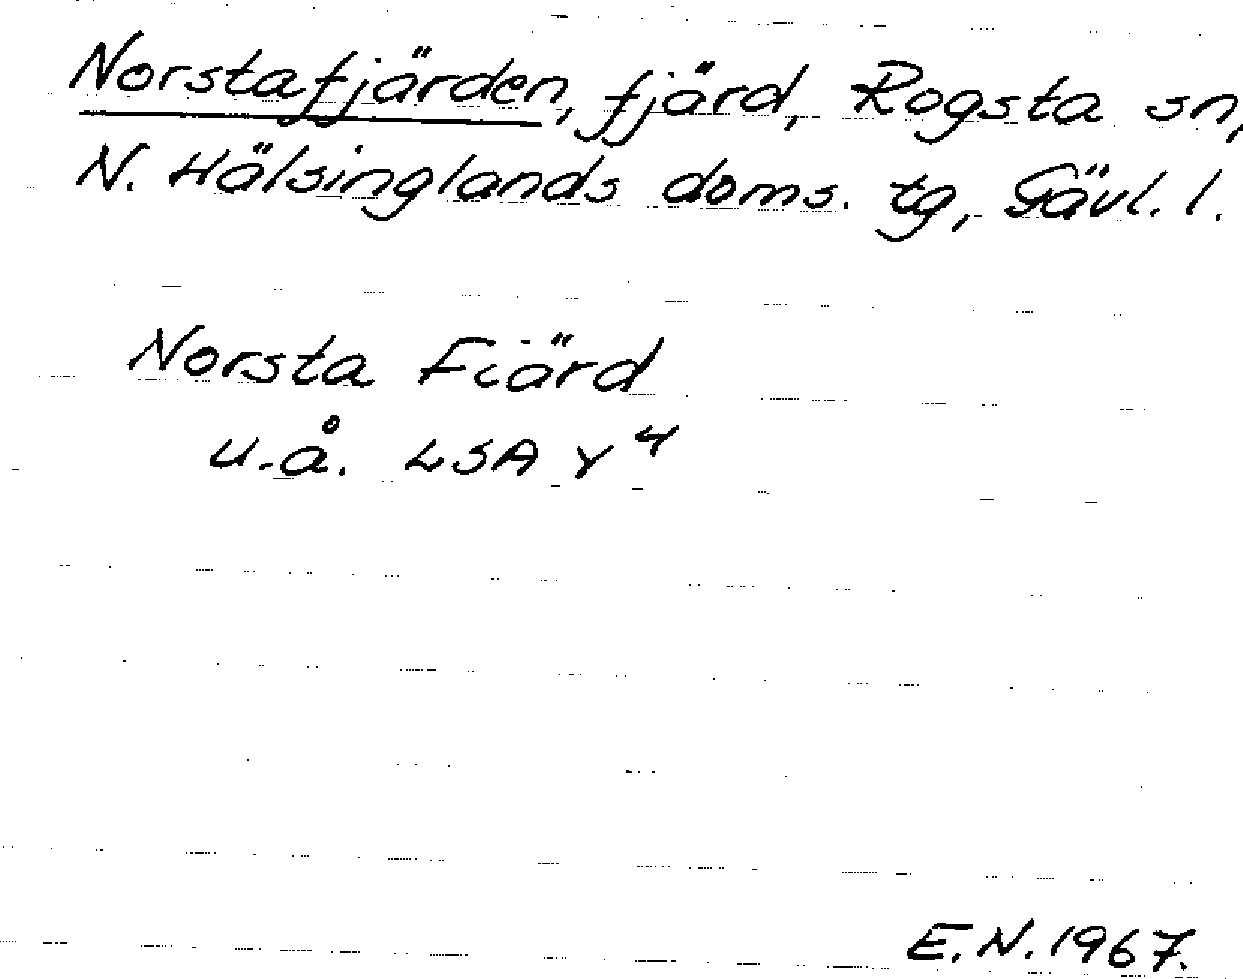 Norstafjärden, fjärd, Rogsta sn,
N. Hälsinglands doms. tg, Gävl. l.
Norsta Fiärd
u.å. LSA Y 4
E.N. 1967.